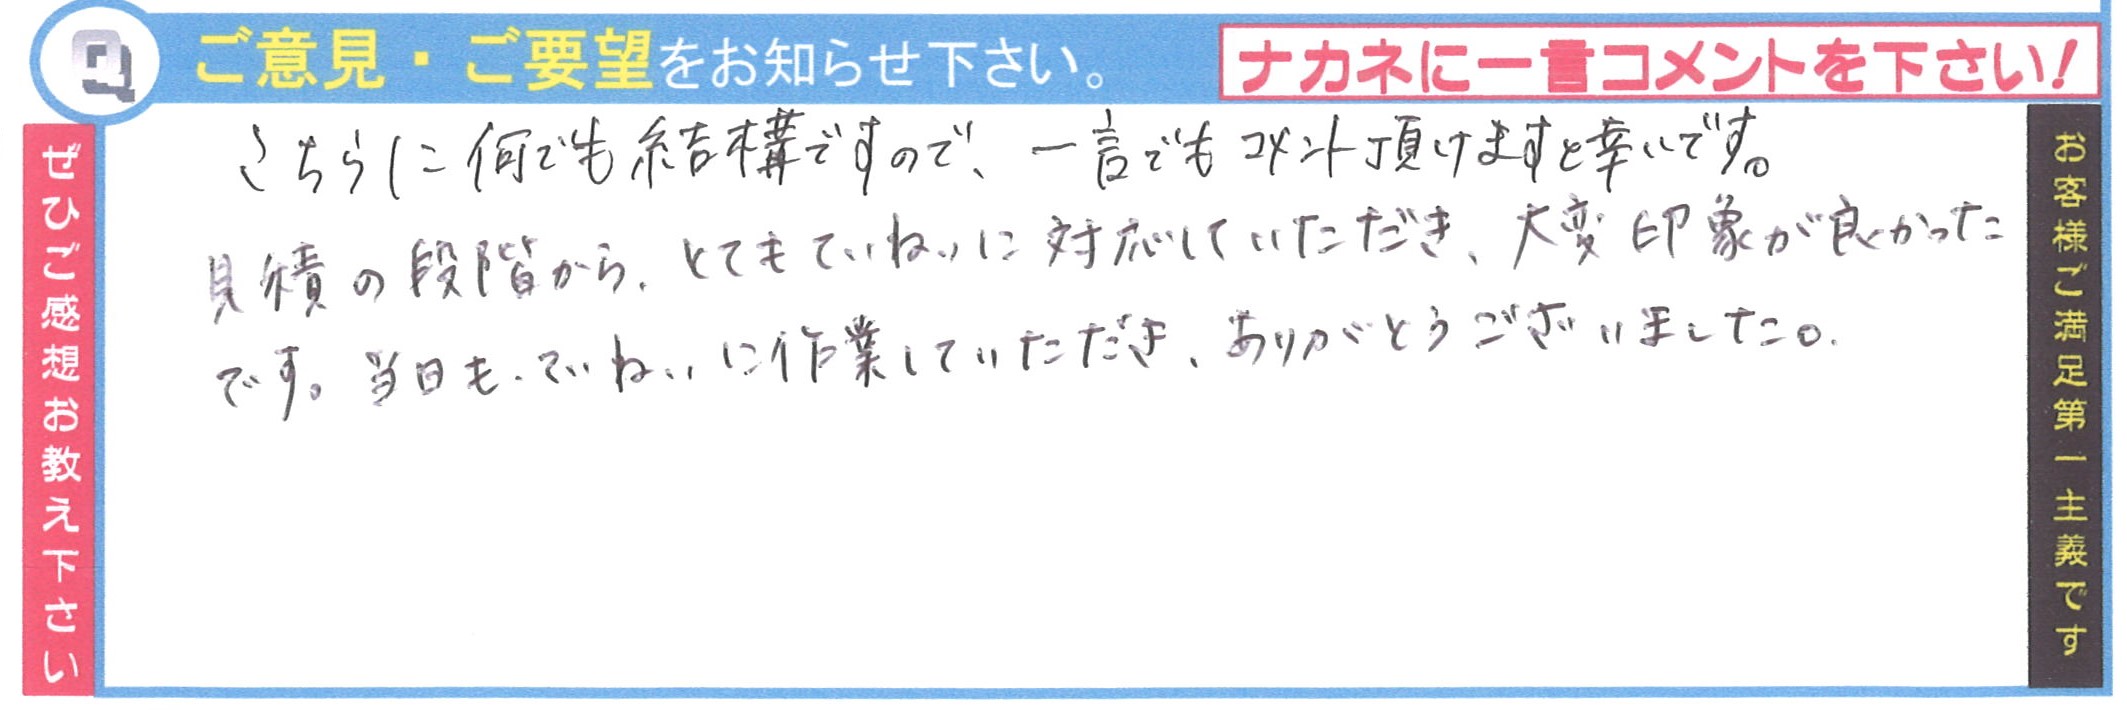 Q ご意見・ご要望をお知らせ下さい。
ナカネに一言コメントを下さい!
ぜひご感想お教え下さい
こちらに何でも結構ですので、一言でもコメント頂けますと幸いです。
見積の段階から、とてもていねいに対応していただき、大変印象が良かった
です。当日も、ていねいに作業していただき、ありがとうございました。
お客様ご満足第一主義です